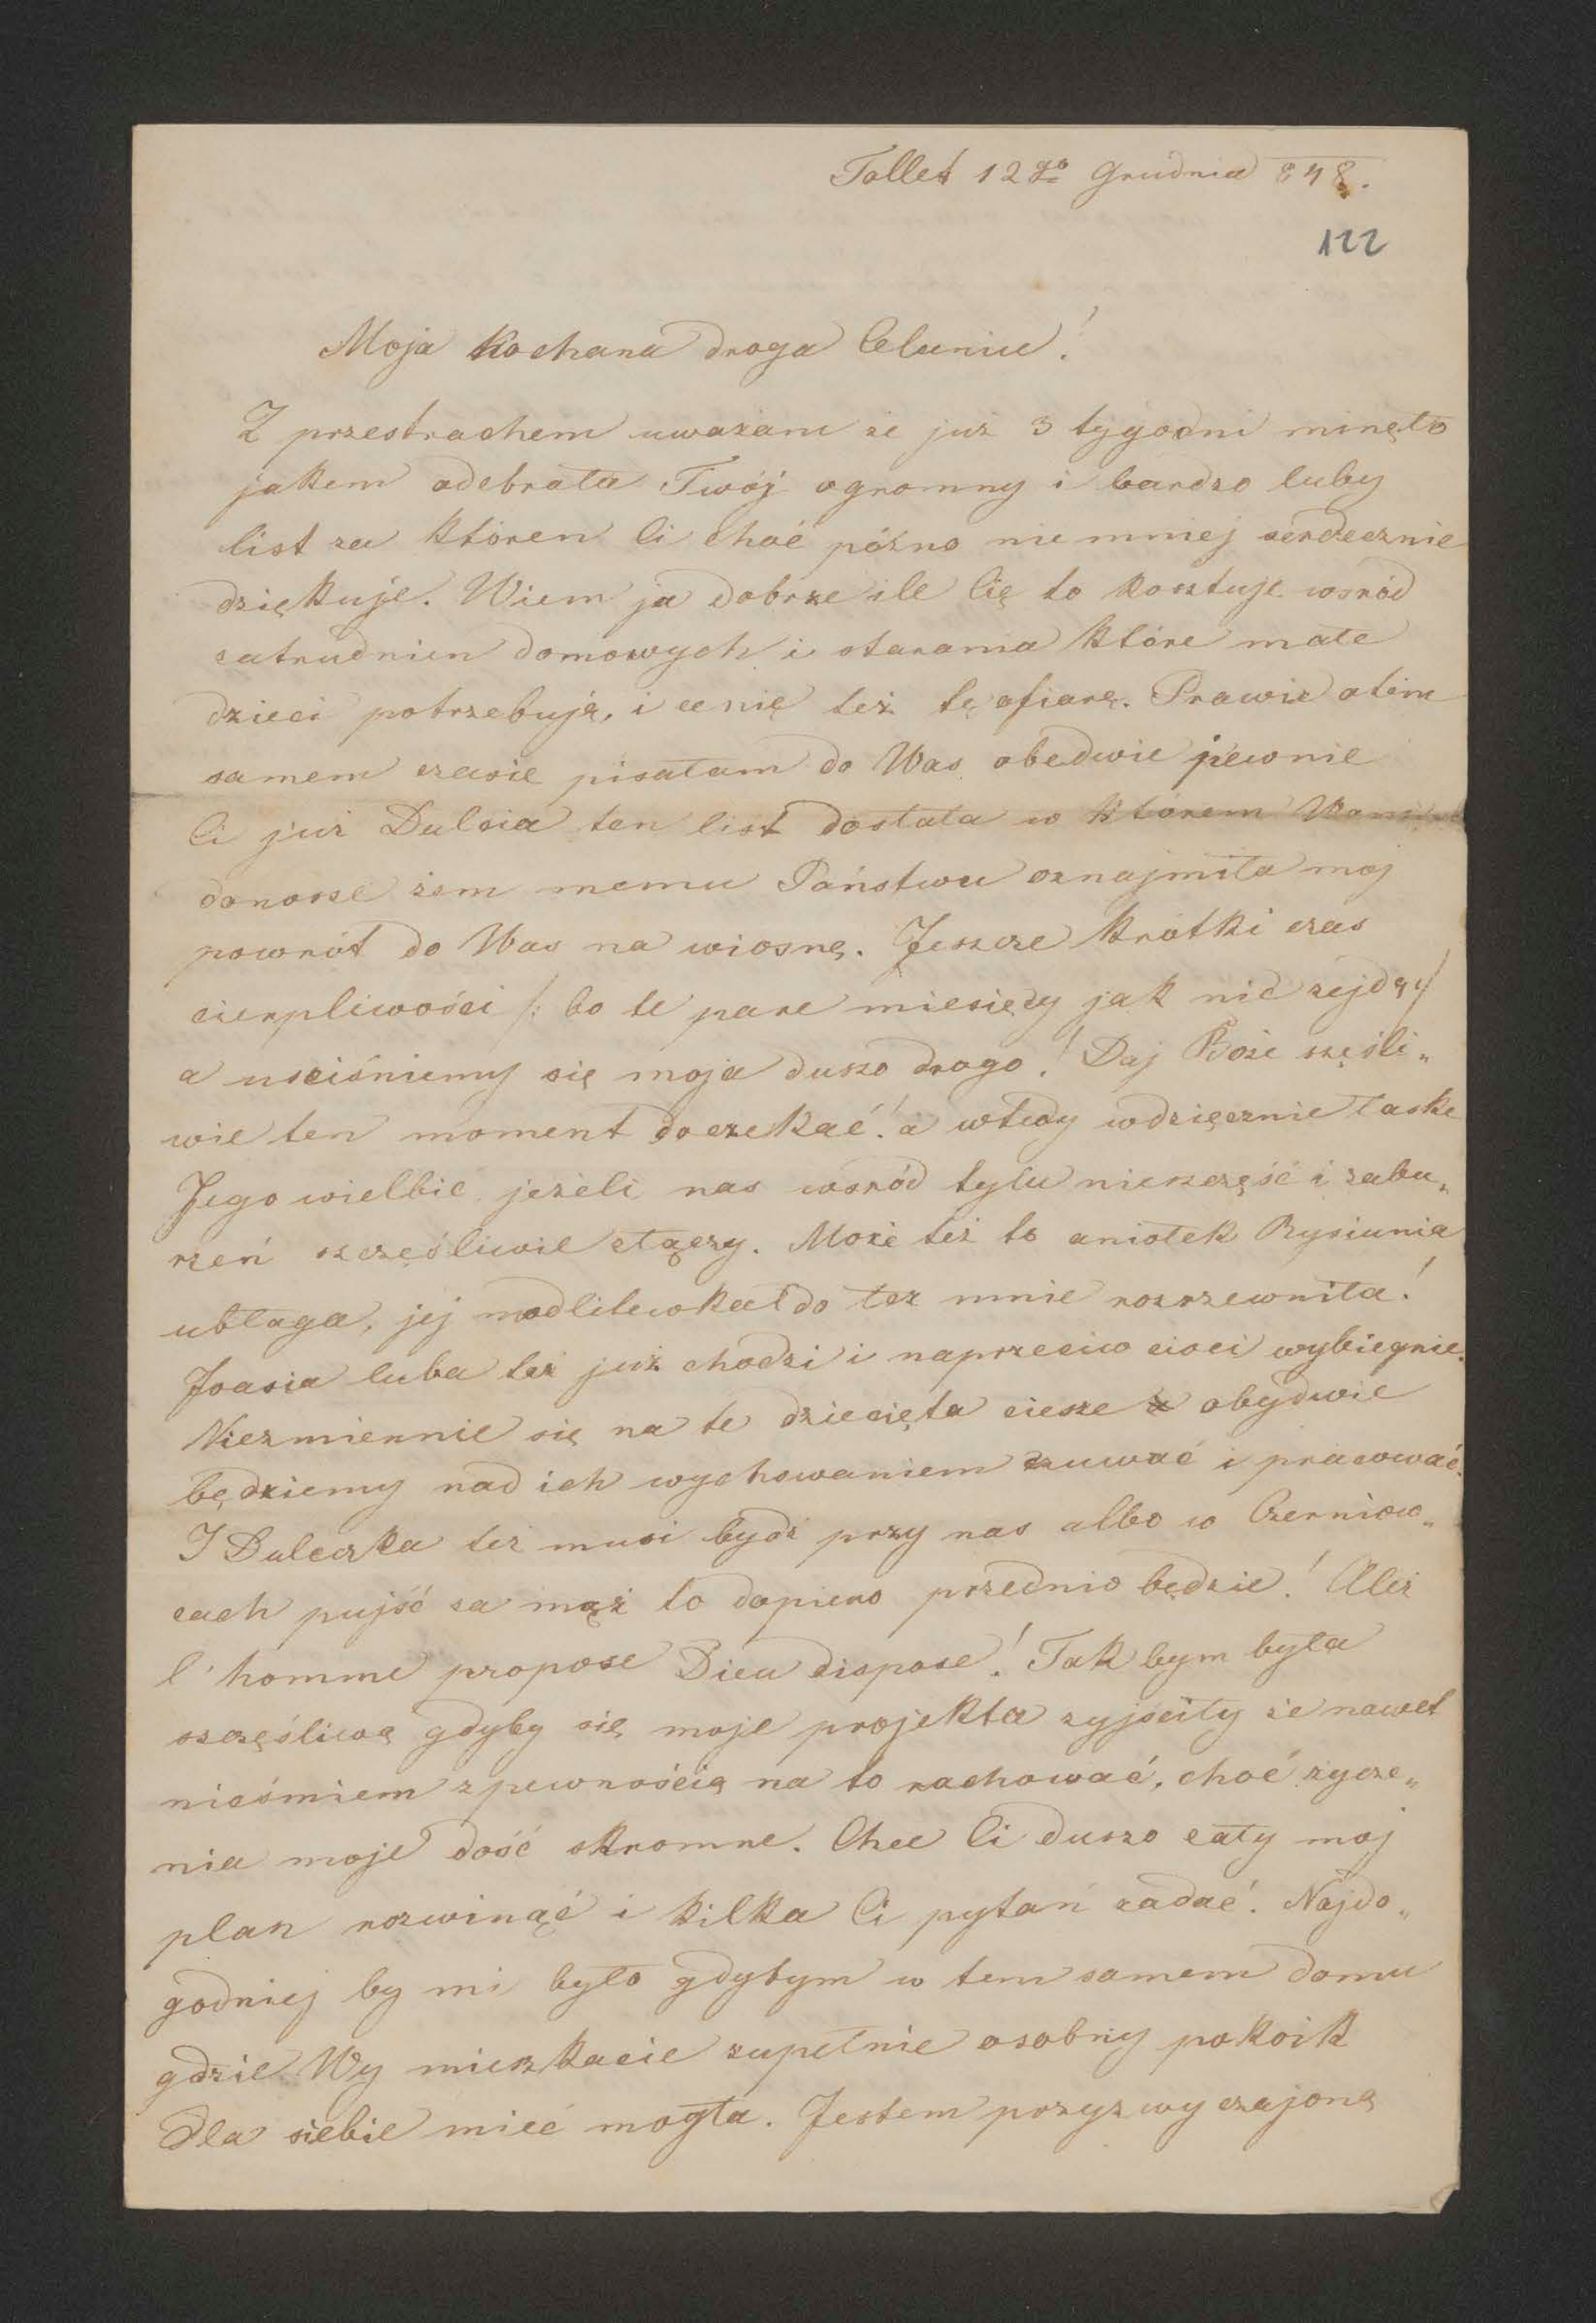 Tollet 12go Grudnia 848.
122
Moja kochana droga Celuniu!
Z przestrachem uważam że już 3 tygodni minęło
jakem odebrała Twój ogromny i bardzo luby
list za któren Ci choć późno nie mniej serdecznie
dziękuje. Wiem ja dobrze ile Cię to kosztuje wśród
zatrudnien domowych i starania które małe
dzieci potrzebują, i cenię też tę ofiarę. Prawie o tim
samem czasie pisałam do Was obedwie pewnie
Ci już Dulcia ten list dostała w którem Wam
donosze żem memu Państwu oznajmiła moj
powrót do Was na wiosnę. Jeszcze krótki czas
cierpliwości /: bo te pare miesięcy jak nic zejdą :/
a usciśniemy się moja duszo drogo! Daj Boże szęśli„
wie ten moment doczekać! a wtedy wdzięcznie łaske
Jego wielbic jeżeli nas wsród tylu nieszczęść i zabu„
rzeń szczęśliwie złączy. Może też to aniołek Rysiunia
ubłaga, jej modlitewka do łez mnie rozrzewniła!
Joasia luba też już chodzi i naprzeciw cioci wybiegnie.
Niezmiernie się na te dziecięta ciesze obydwie
będziemy nad ich wychowaniem czuwać i pracować.
I Duleczka też musi bydź przy nas albo w Czerniow„
cach pujść za mąż to dopiero przednio będzie! Ależ
l'homme propose Dieu dispose! Tak bym była
szczęśliwą gdyby się moje projekta zyjściły że nawet
nieśmiem z pewnością na to rachować, choć życze„
nia moje dość skromne. Chce Ci duszo cały moj
plan rozwinąć i kilka Ci pytań zadać. Najdo„
godniej by mi było gdybym w tem samem domu
gdzie Wy mieszkacie zupełnie osobny pokoik
dla siebie mieć mogła. Jestem przyzwyczajoną